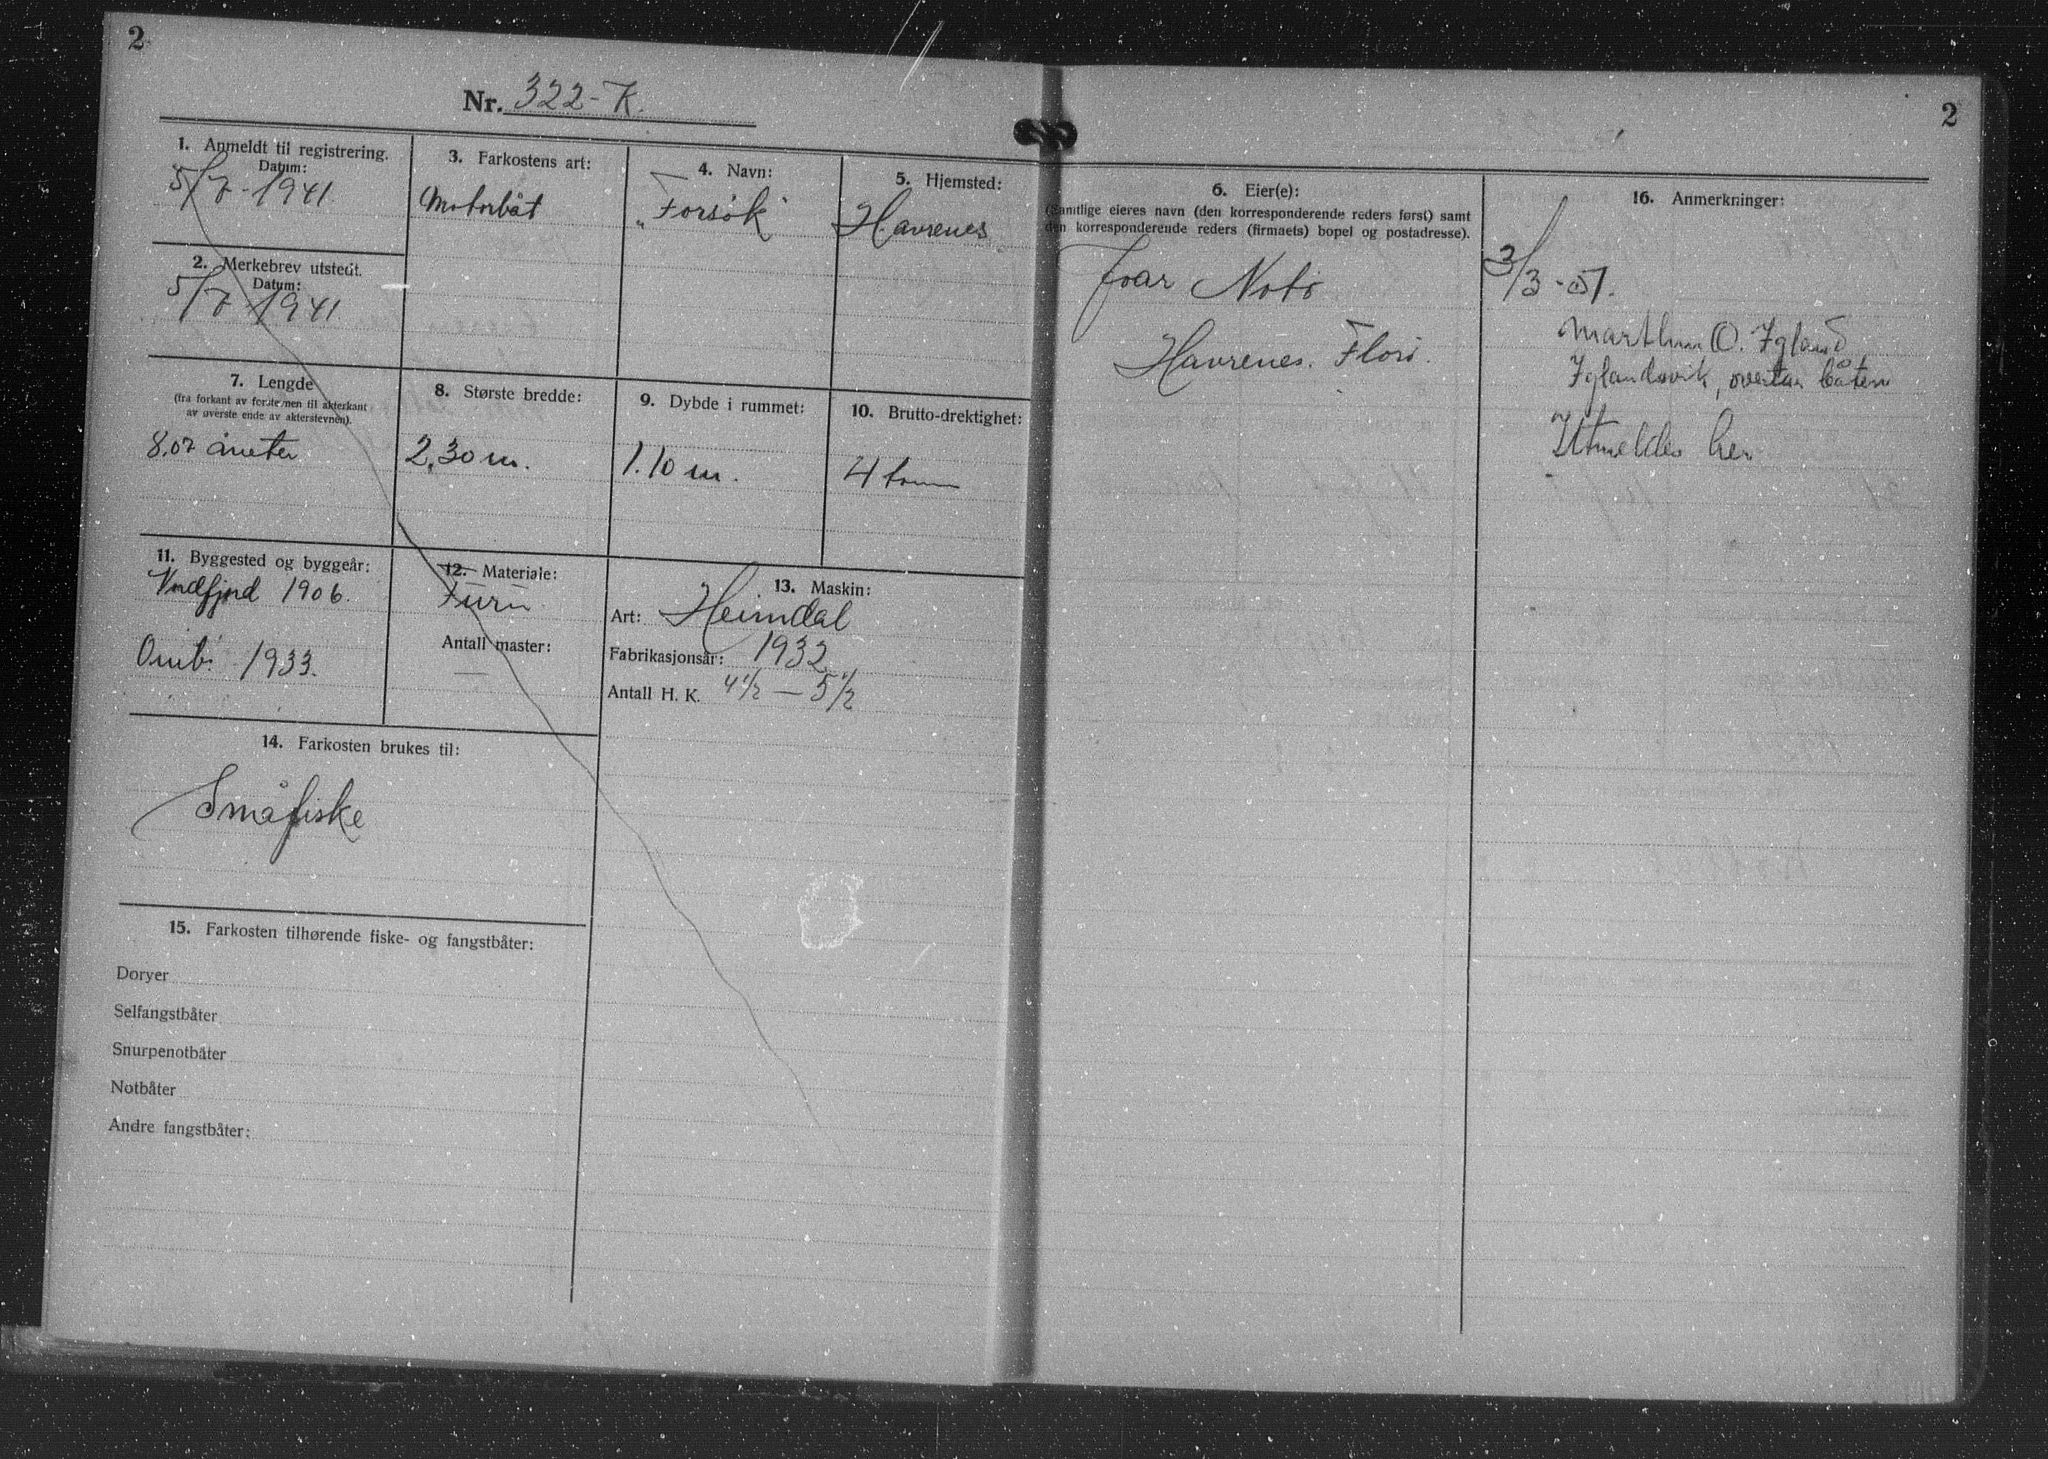 2
Nr. 322-K.
1. Anmeldt til registrering.
Datum:
5/7-1941
2. Merkebrev utstedt.
Datum:
5/7-1941
3. Farkostens art:
Motorbåt
4. Navn:
"Forsøk"
5. Hjemsted:
Havrenes
7. Lengde
(fra forkant av forstevnen til akterkant
av øverste ende av akterstevnen).
8,07 meter
8. Største bredde:
2,30 m.
9. Dybde i rummet:
1.10 m.
10. Brutto-drektighet:
4 tonn
11. Byggested og byggeår:
Nordfjord 1906.
Omb. 1933.
12. Materiale:
Furu
Antall master:
—
13. Maskin:
Art: Heimdal
Fabrikasjonsår: 1932
Antall H. K. 4 1/2 — 5 1/2
14. Farkosten brukes til:
Småfiske
15. Farkosten tilhørende fiske- og fangstbåter:
Doryer
Selfangstbåter
Snurpenotbåter
Notbåter
Andre fangstbåter:
2
6. Eier(e):
(Samtlige eieres navn (den korresponderende reders først) samt
den korresponderende reders (firmaets) bopel og postadresse).
Joar Notø
Havrenes. Florø.
16. Anmerkninger:
3/3-51.
O. Igland
Iglandsvik, overtar båten
Utmeldes her